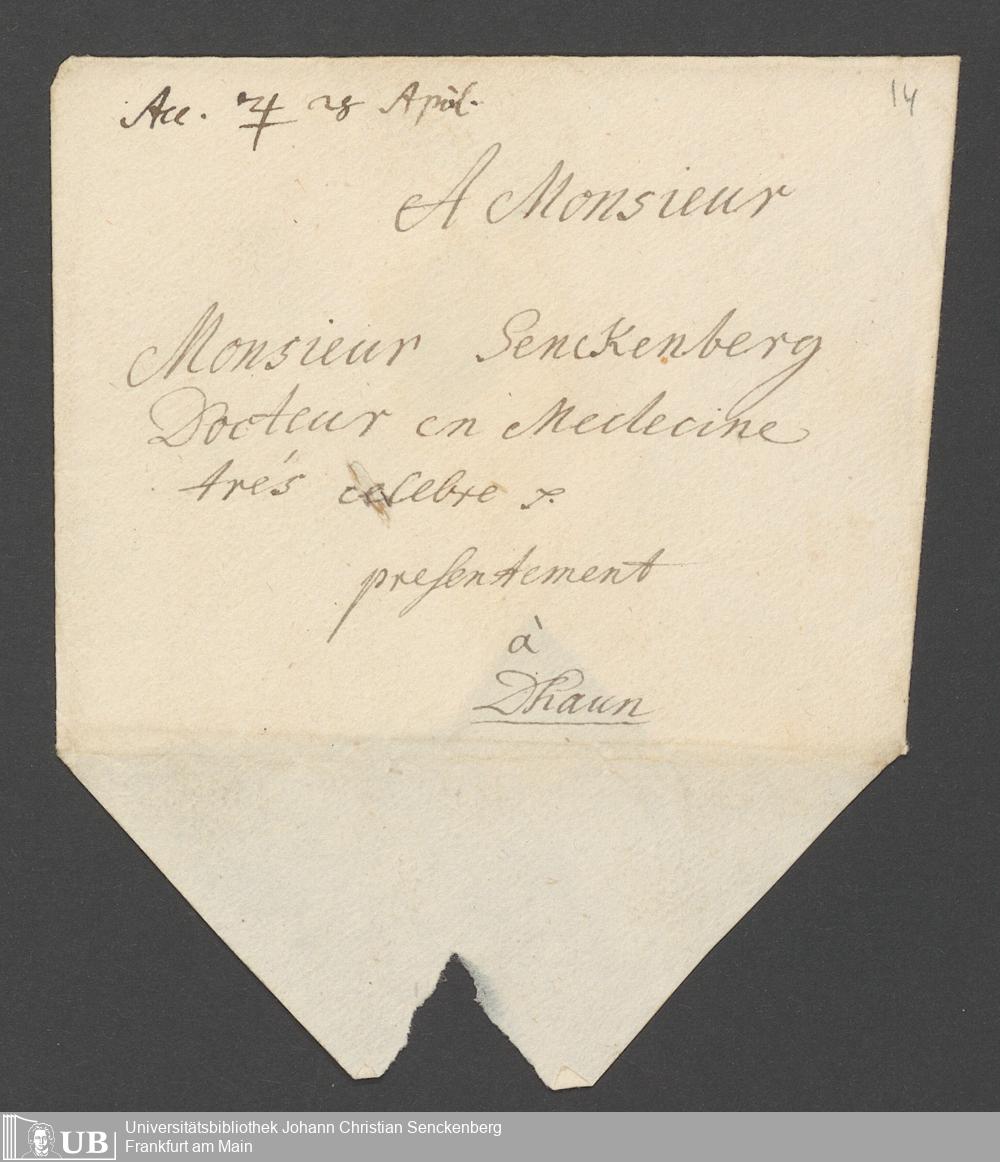 Acc. ♃ 28 April.
14
A Monsieur
Monsieur Senckenberg
Docteur en Medecine
trés celebre p.
presentement
à
Dhaun
UB
Universitätsbibliothek Johann Christian Senckenberg
Frankfurt am Main